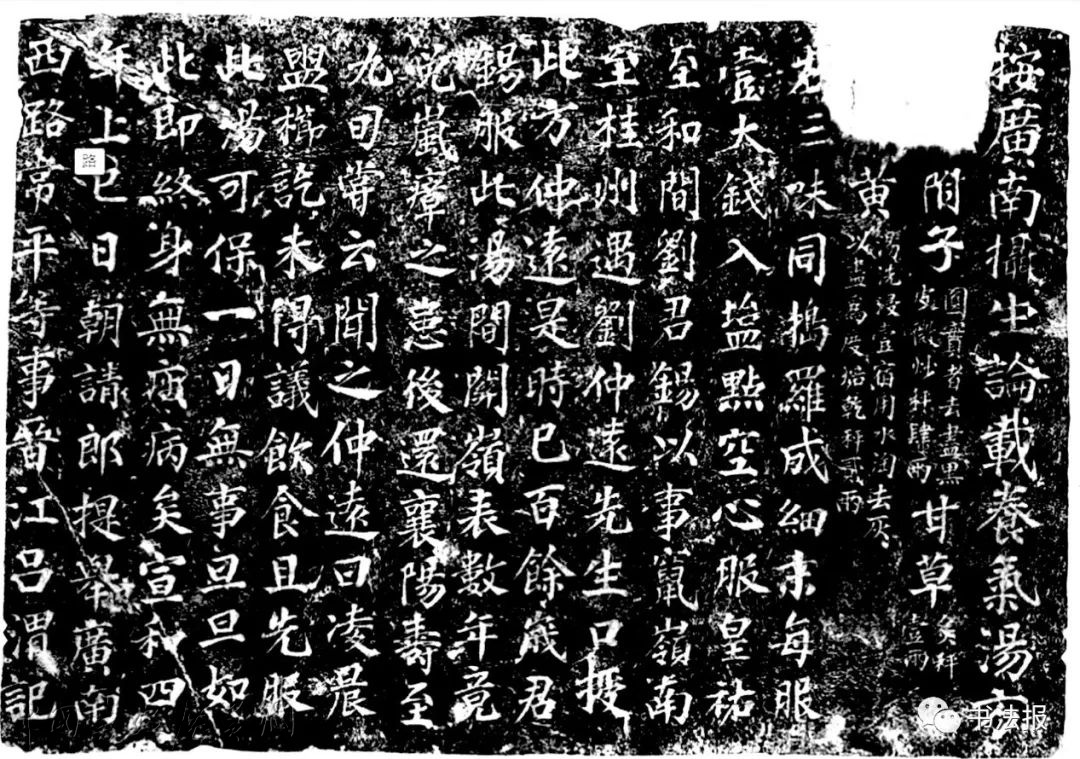 按廣南攝生論載養氣湯方
附子 圓實者去盡黑皮微炒秤肆兩 甘草 炙秤壹兩
黄 湯洗浸壹宿用水淘去灰以盡爲度焙乾秤貳兩
右三味同搗羅成細末每服
壹大錢入盬點空心服皇祐
至和間劉君錫以事竄嶺南
至桂州遇劉仲遠先生口授
此方仲遠是時已百餘歲君
錫服此湯間關嶺表數年竟
免嵐瘴之患後還襄陽壽至
九曰嘗云聞之仲遠曰凌晨
盥櫛訖未得議飲食且先服
此湯可保一日無事旦旦如
此即終身無疾病矣宣和四
年上巳日朝請郎提舉廣南
西路常平等事晉江吕渭記
路
书法报